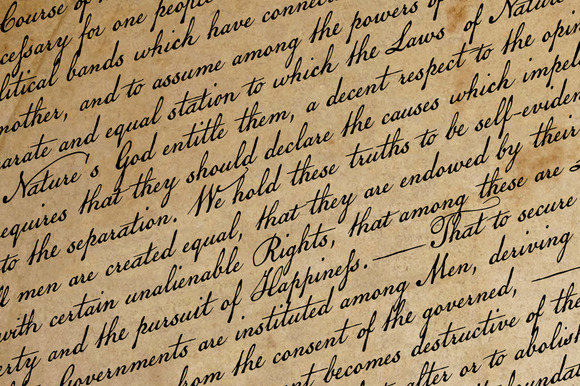 Course of
cefsary for one people
litical bands which have connec
nother, and to assume among the powers of
arate and equal station to which the Laws of Nature
Nature's God entitle them, a decent respect to the opin
equires that they should declare the causes which impel
to the separation. We hold these truths to be self-eviden
ll men are created equal, that they are endowed by their
with certain unalienable Rights, that among these are L
erty and the pursuit of Happinefs. — That to secure
Governments are instituted among Men, deriving
from the consent of the governed, —
nt becomes destructive of the
alter or to abolish
foundat